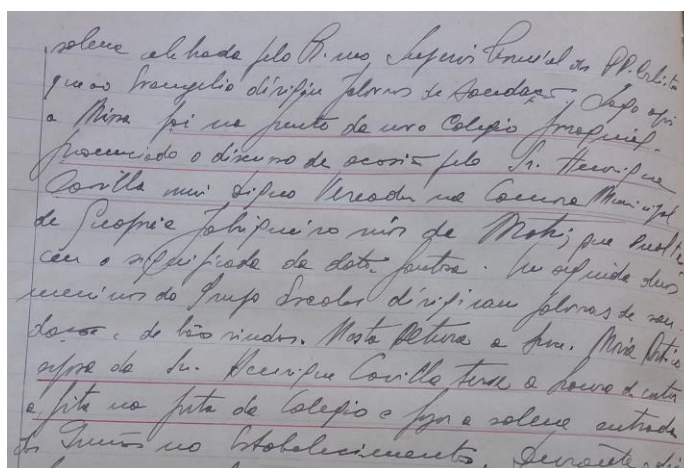 solene celebrada pelo R.mo Superior Provincial dos PP.
que ao Evangelio dirigiu palavras de Saudação. Logo após
a Missa foi na frente do novo Colegio
pronunciado o discurso de ocasião pelo Sr. Henrique
Covilla mui digno Vereador na Camara Municipal
de e fabriqueiro mór da Matriz que
ceu o significado da data fausta. Em seguida dois
meninos do Grupo Escolar dirigiram palavras de sau
dação e de bão vindos. Nesta altura a Sra. Maria
esposa do Sr. Henrique Covilla teve a honra de cortar
a fita na porta do Colegio e fazer a solene entrada
das Irmãs no Estabelecimento. Durante